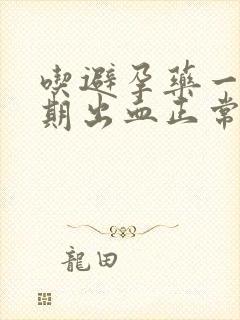 喫避孕藥一
期出血正常
龍田